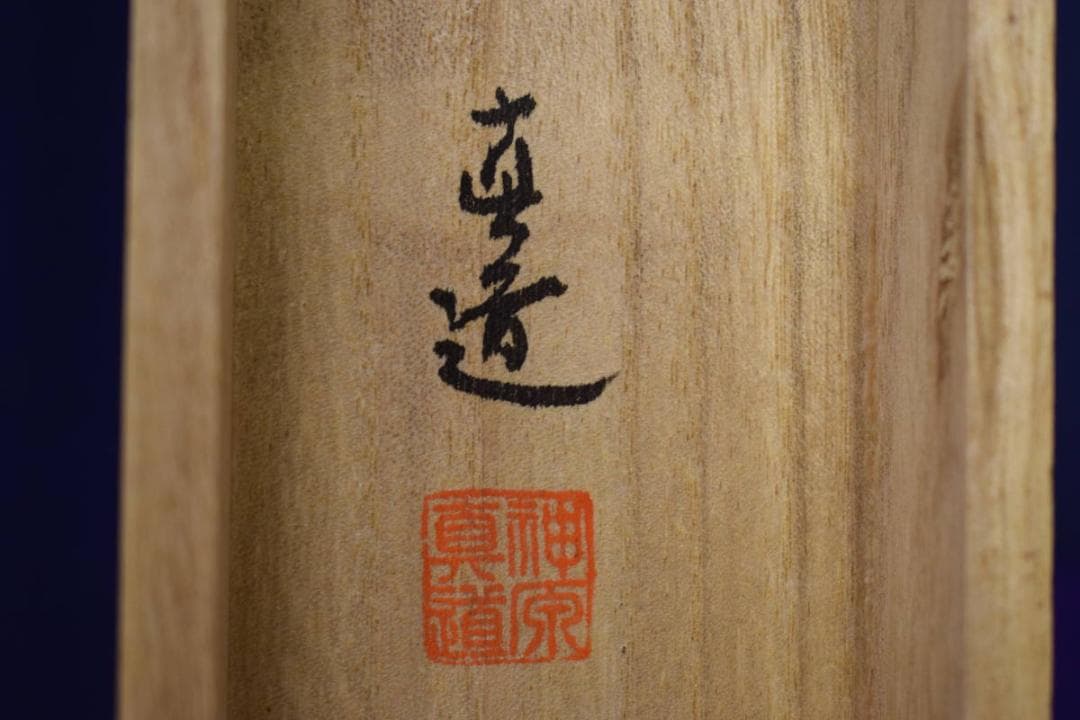 真道
神原
真道